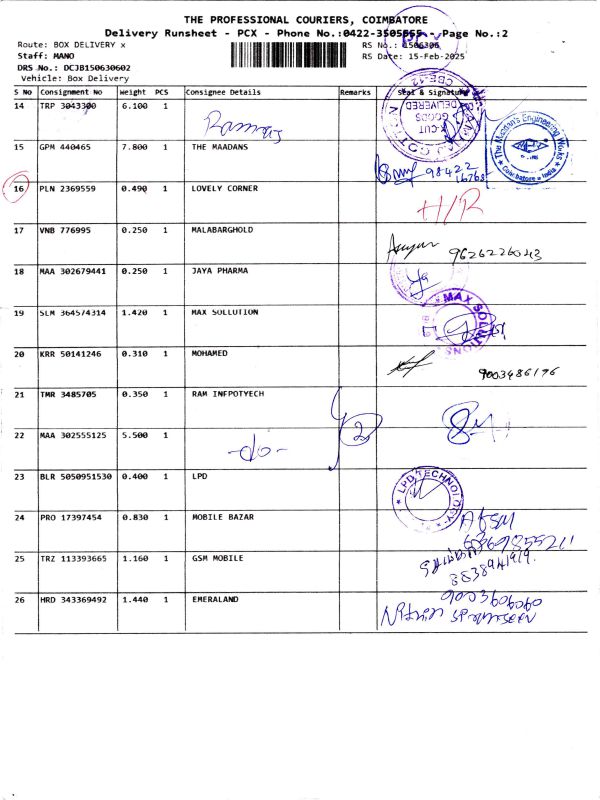 THE PROFESSIONAL COURIERS, COIMBATORE
Delivery Runsheet - PCX - Phone No.:0422-3505555 Page No.:2
Route: BOX DELIVERY x RS No.: 1506306
Staff: MANO RS Date: 15-Feb-2025
DRS No.: DCJB150630602
Vehicle: Box Delivery
S No Consignment No Weight PCS Consignee Details Remarks Seal & Signature
14 TRP 3043300 6.100 1
15 GPM 440465 7.800 1 THE MAADANS
98422
16768
The Maadan's Engineering Works
Coimbatore India
16 PLN 2369559 0.490 1 LOVELY CORNER H/R
17 VNB 776995 0.250 1 MALABARGHOLD 9626226043
18 MAA 302679441 0.250 1 JAYA PHARMA
19 SLM 364574314 1.420 1 MAX SOLLUTION MAX SOLUTIONS
20 KRR 50141246 0.310 1 MOHAMED 9003486176
21 TMR 3485705 0.350 1 RAM INFPOTYECH
2
22 MAA 302555125 5.500 1 -do-
23 BLR 5050951530 0.400 1 LPD LPD TECHNOLOGY
24 PRO 17397454 0.830 1 MOBILE BAZAR
25 TRZ 113393665 1.160 1 GSM MOBILE
26 HRD 343369492 1.440 1 EMERALAND